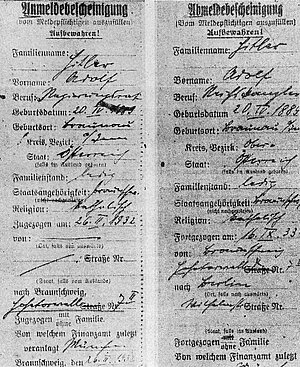 Anmeldebescheinigung
(Vom Meldepflichtigen auszufüllen)
Aufbewahren!
Familienname:
Hitler
Vorname: Adolf
Beruf: Regierungsrat
Geburtsdatum: 20. IV.
Geburtsort: Braunau
Kreis, Bezirk:
Staat: Österreich
(falls im Ausland geboren)
Familienstand: ledig
Staatsangehörigkeit:
Religion: katholisch
Zugezogen am 26. II. 1932
von:
(Ort, falls vom auswärts)
Straße Nr.
(Staat, falls vom Auslande)
nach Braunschweig,
Straße Nr.
Zugezogen mit Familie
ohne
Von welchem Finanzamt zuletzt
veranlagt München
Braunschweig, den 26. II.
Abmeldebescheinigung
(Vom Meldepflichtigen auszufüllen)
Aufbewahren!
Familienname: Hitler
Vorname: Adolf
Beruf: Reichskanzler
Geburtsdatum 20. IV.
Geburtsort: Braunau
Kreis, Bezirk:
Staat: Österreich
(falls im Ausland geboren)
Familienstand: ledig
Staatsangehörigkeit:
Religion: katholisch
Fortgezogen am 16. IX. 33
von: Braunschweig
Straße Nr.
nach Berlin
(Ort, falls nach auswärts)
Straße Nr.
(Staat, falls ins Ausland)
Fortgezogen mit Familie
ohne
Von welchem Finanzamt zuletzt